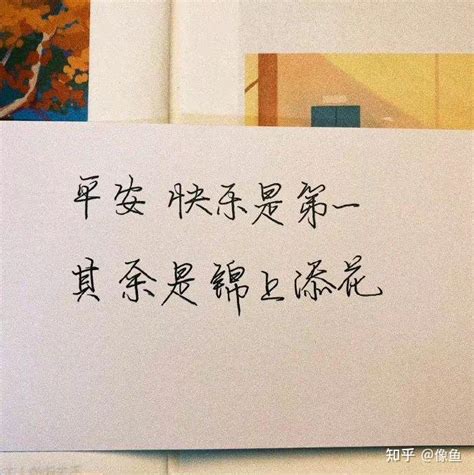 平安 快乐是第一
其余是锦上添花
知乎 @像鱼